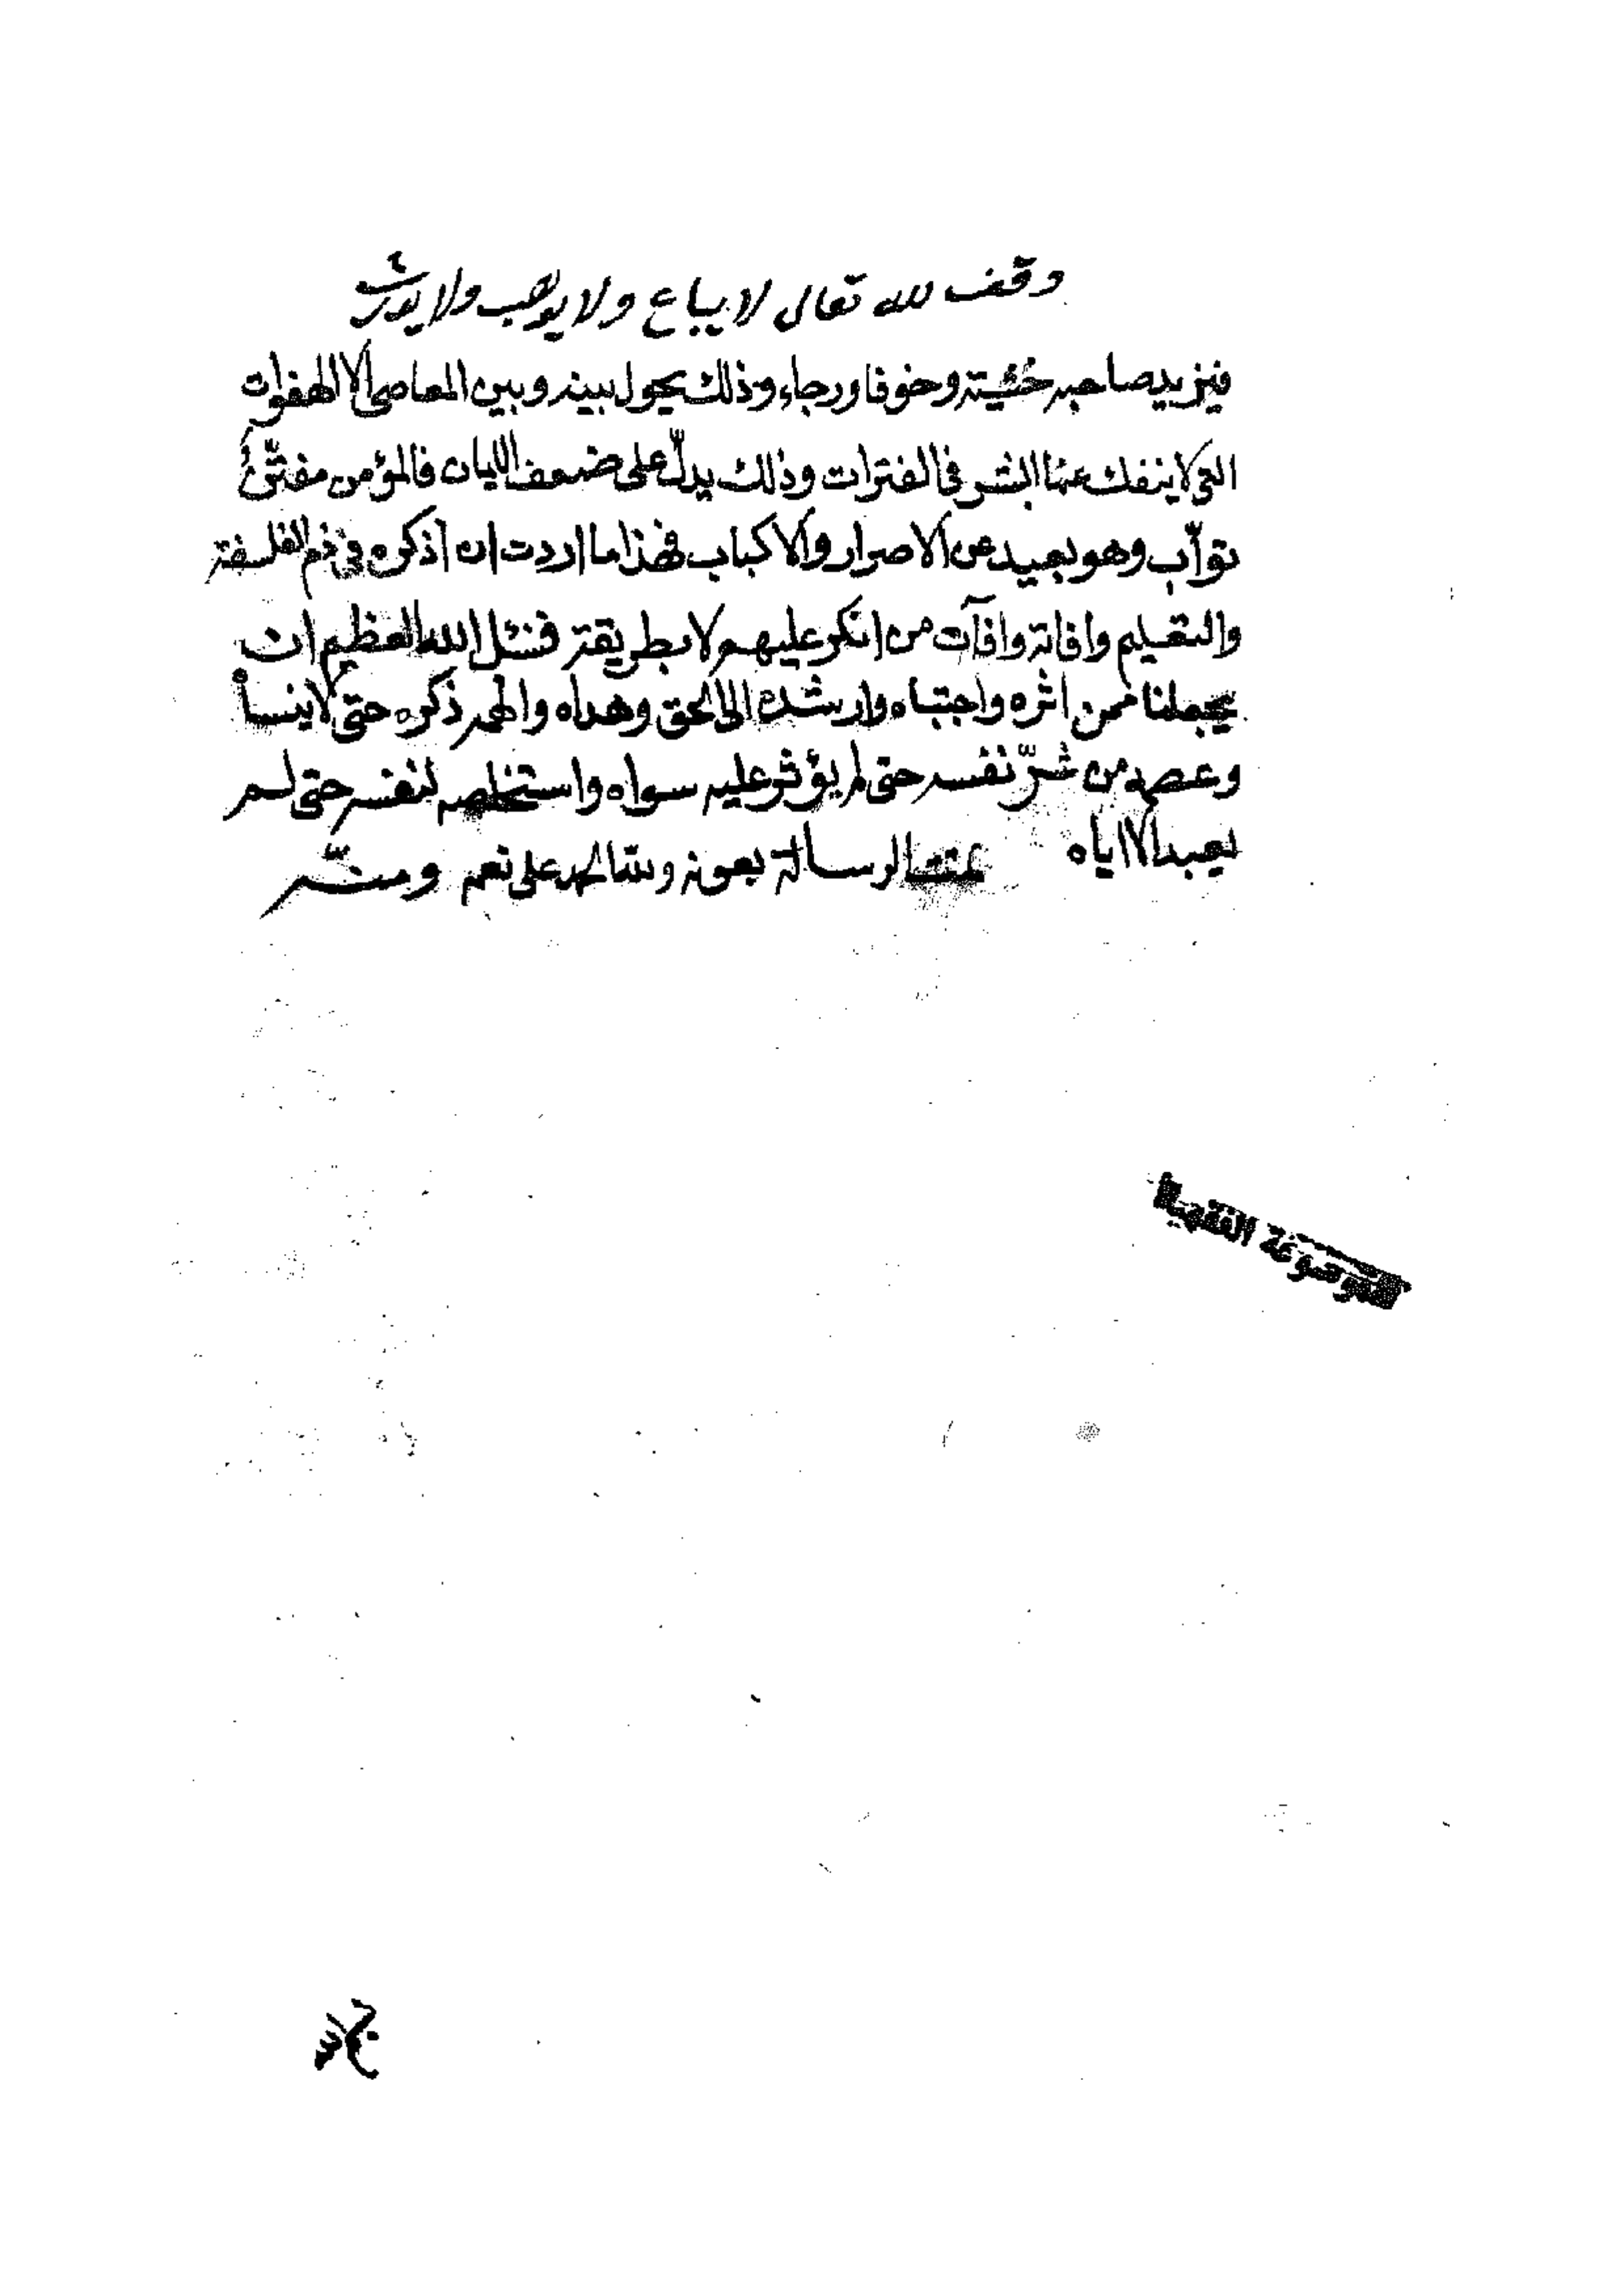 وقف لله تعالى لا يباع ولا يوهب ولا يورث
فيزيد صاحبه خشية وخوفا ورجاء وذلك يحول بينه وبين المعاصى الا الهفوات
التى لا ينفك عنها البشر فى الفترات وذلك يدلّ على ضعف الايمان فالمؤمن مفتّن
توّاب وهو بعيد عن الاصرار والاكباب فهذا ما اردت ان اذكره فى ذم الفلسفة
والتعليم وافاته وافآت من انكر عليهم لا بطريقة فنسئل الله العظيم ان
يجعلنا ممن اثره واجتباه وارشده الى الحق وهداه والهمه ذكره حتى لا ينساه
وعصمه من شرّ نفسه حتى لم يؤثر عليه سواه واستخلصه لنفسه حتى لم
يعبد الا اياه تمت الرسالة بعونه ولله الحمد على نعمه ومنّه
الموسوعة الفقهية